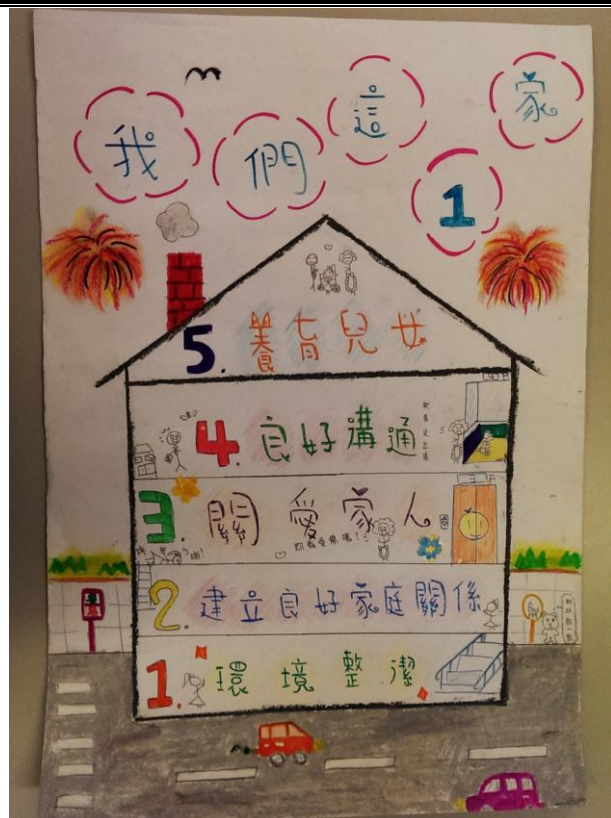 我們這1家
5. 養育兒女
4. 良好溝通
3. 關愛家人
2. 建立良好家庭關係
1. 環境整潔